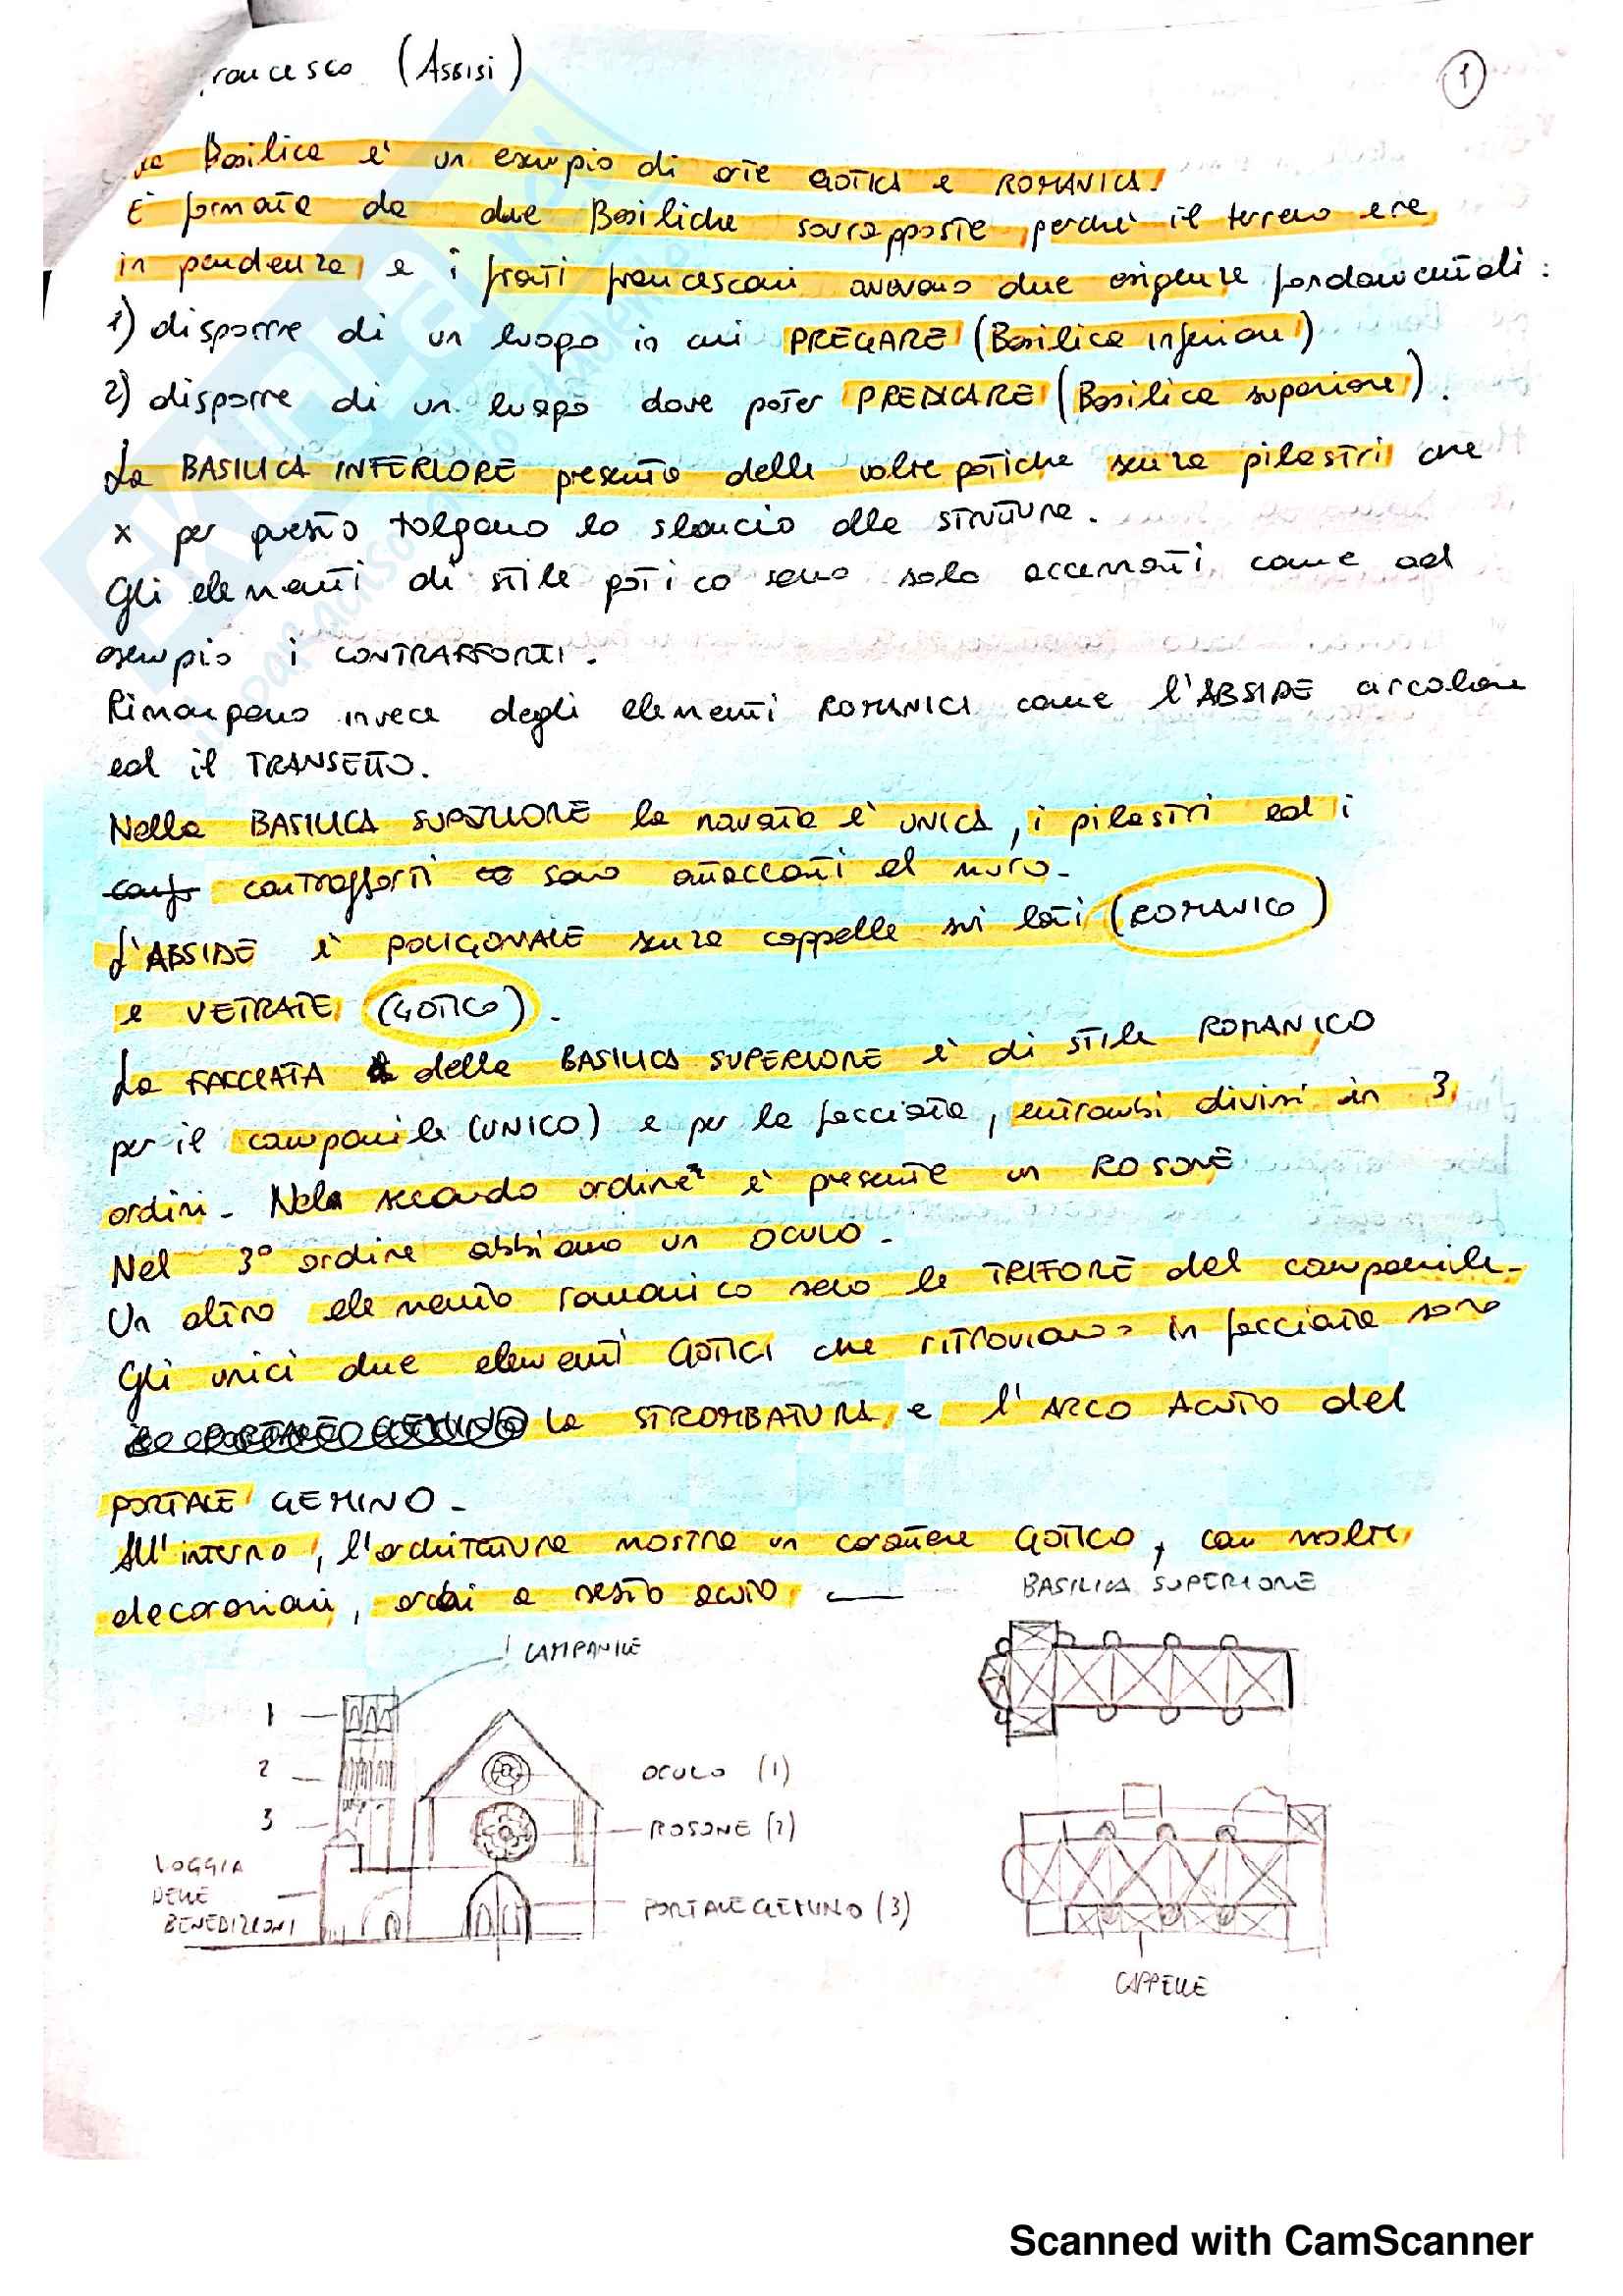 rancesco (Assisi)
1
Basilica è un esempio di arte GOTICA e ROMANICA.
È formata da due Basiliche sovrapposte perchè il terreno era
in pendenza e i frati francescani avevano due esigenze fondamentali:
1) disporre di un luogo in cui PREGARE (Basilica inferiore)
2) disporre di un luogo dove poter PREDICARE (Basilica superiore).
La BASILICA INFERIORE presenta delle volte gotiche senza pilastri che
x per questo tolgono lo slancio alla struttura.
Gli elementi di stile gotico sono solo accennati come ad
esempio i CONTRAFFORTI.
Rimangono invece degli elementi ROMANICI come l'ABSIDE circolare
ed il TRANSETTO.
Nella BASILICA SUPERIORE la navata è UNICA, i pilastri ed i
contrafforti sono attaccati al muro.
L'ABSIDE è POLIGONALE senza cappelle sui lati (ROMANICO)
e VETRATE (GOTICO).
La FACCIATA della BASILICA SUPERIORE è di stile ROMANICO
per il campanile (UNICO) e per la facciata, entrambi divisi in 3
ordini. Nel secondo ordine è presente un ROSONE
Nel 3° ordine abbiamo un OCULO.
Un altro elemento romanico sono le TRIFORE del campanile.
Gli unici due elementi GOTICI che ritroviamo in facciata sono
la STROMBATURA e l'ARCO ACUTO del
PORTALE GEMINO.
All'interno, l'architettura mostra un carattere GOTICO, con molte
decorazioni, archi a sesto acuto
BASILICA SUPERIORE
CAMPANILE
1
2
3
OCULO (1)
ROSONE (2)
LOGGIA
DELLE
BENEDIZIONI
PORTALE GEMINO (3)
CAPPELLE
Scanned with CamScanner